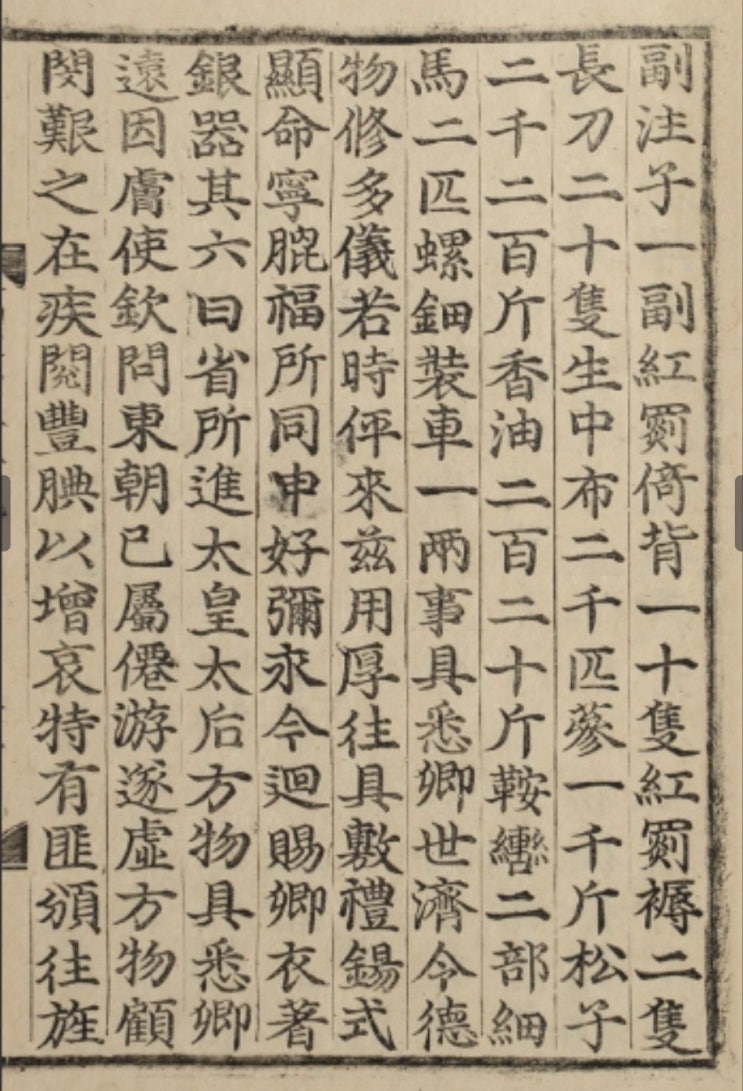 副注子一副紅罽倚背一十隻紅罽褥二隻
長刀二十隻生中布二千匹蔘一千斤松子
二千二百斤香油二百二十斤鞍轡二部細
馬二匹螺鈿裝車一兩事具悉卿世濟令德
物修多儀若時伻來玆用厚往具敷禮錫式
顯命寧膍福所同申好彌永今迴賜卿衣著
銀器其六曰省所進太皇太后方物具悉卿
遠因膚使欽問東朝已屬僊游遂虛方物顧
閔艱之在疚閱豐腆以增哀特有匪頒往旌